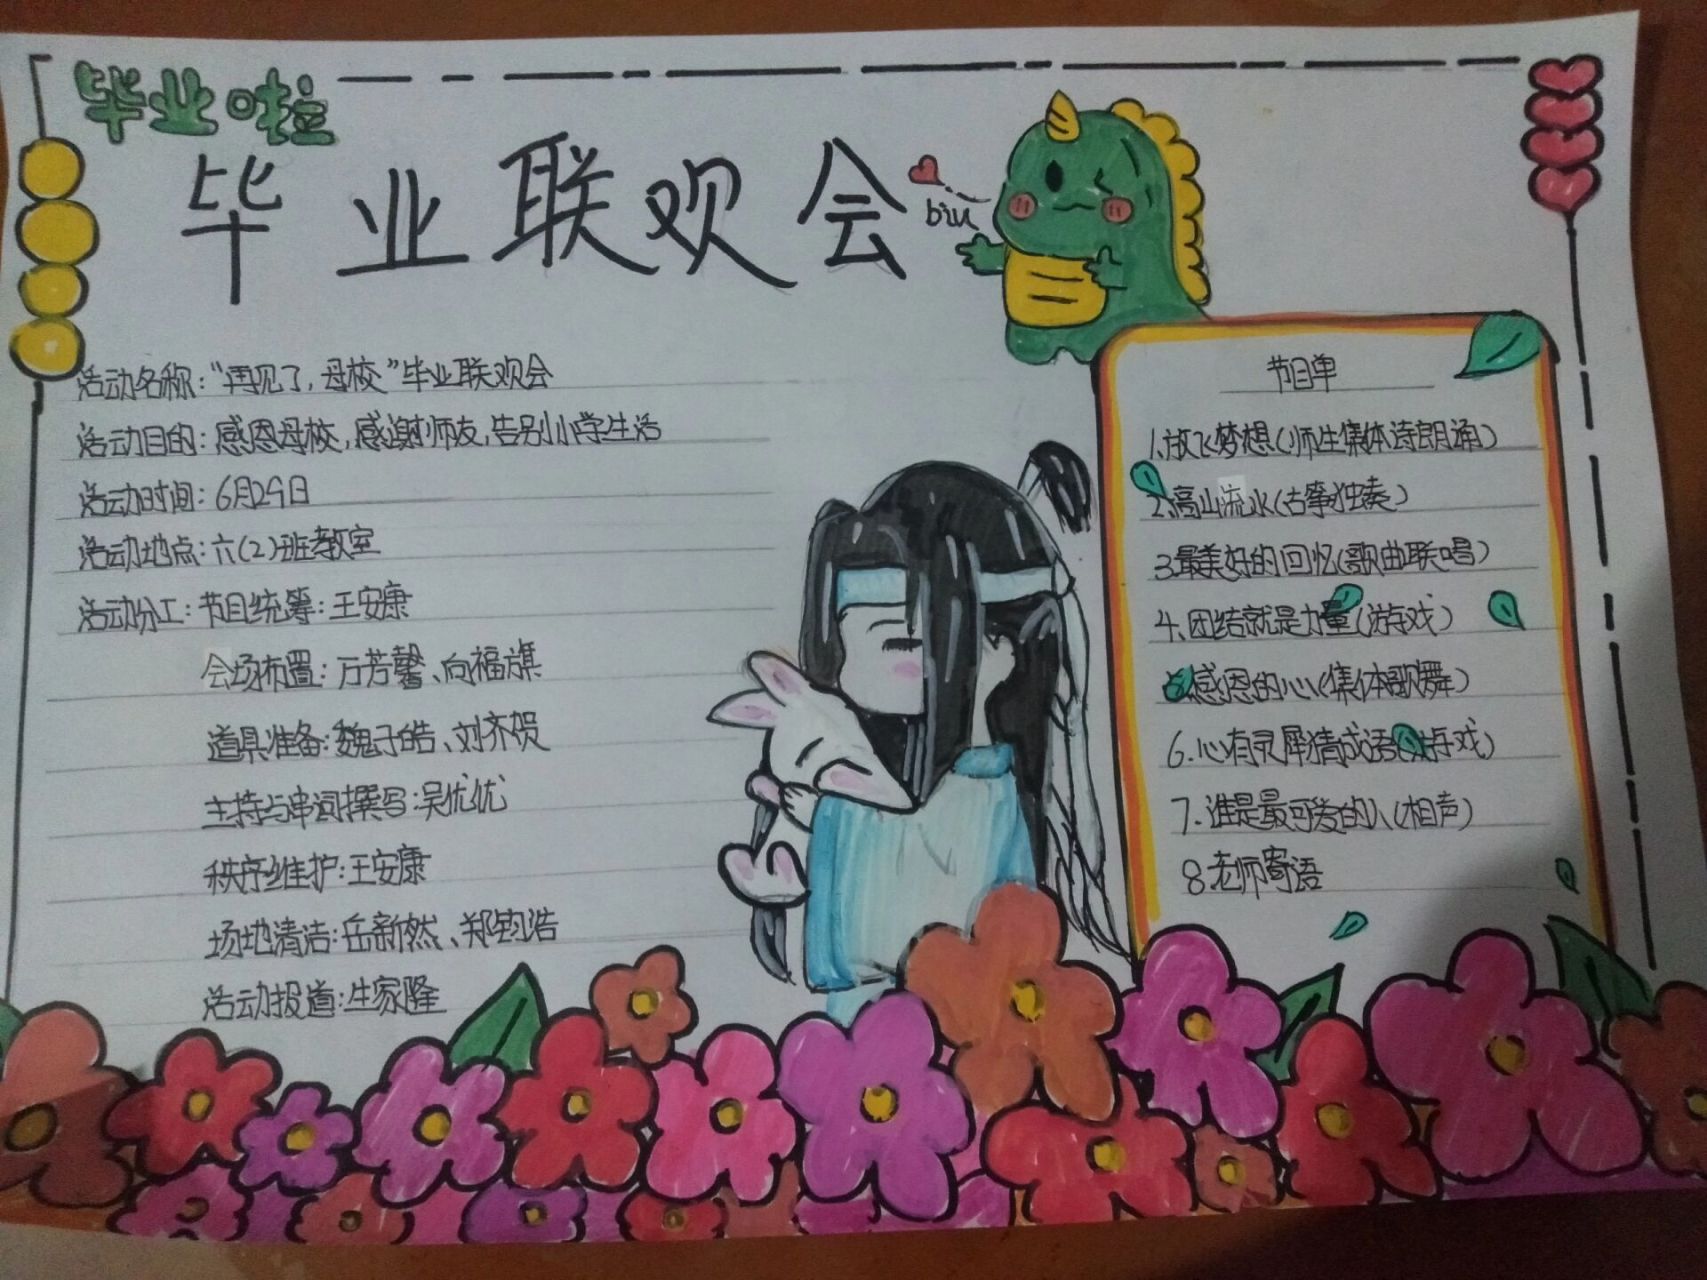 毕业啦
毕业联欢会
biu
活动名称:“再见了,母校”毕业联欢会
活动目的:感恩母校,感谢师友,告别小学生活
活动时间:6月29日
活动地点:六(2)班教室
活动分工:节目统筹:王安康
会场布置:万芳馨、向福旗
道具准备:魏子皓、刘齐贺
主持与串词撰写:吴优优
秩序维护:王安康
场地清洁:岳新然、郑钧浩
活动报道:生家隆
节目单
1.放飞梦想(师生集体诗朗诵)
2.高山流水(古筝独奏)
3.最美好的回忆(歌曲联唱)
4.团结就是力量(游戏)
感恩的心(集体歌舞)
6.心有灵犀猜成语(游戏)
7.谁是最可爱的人(相声)
8.老师寄语